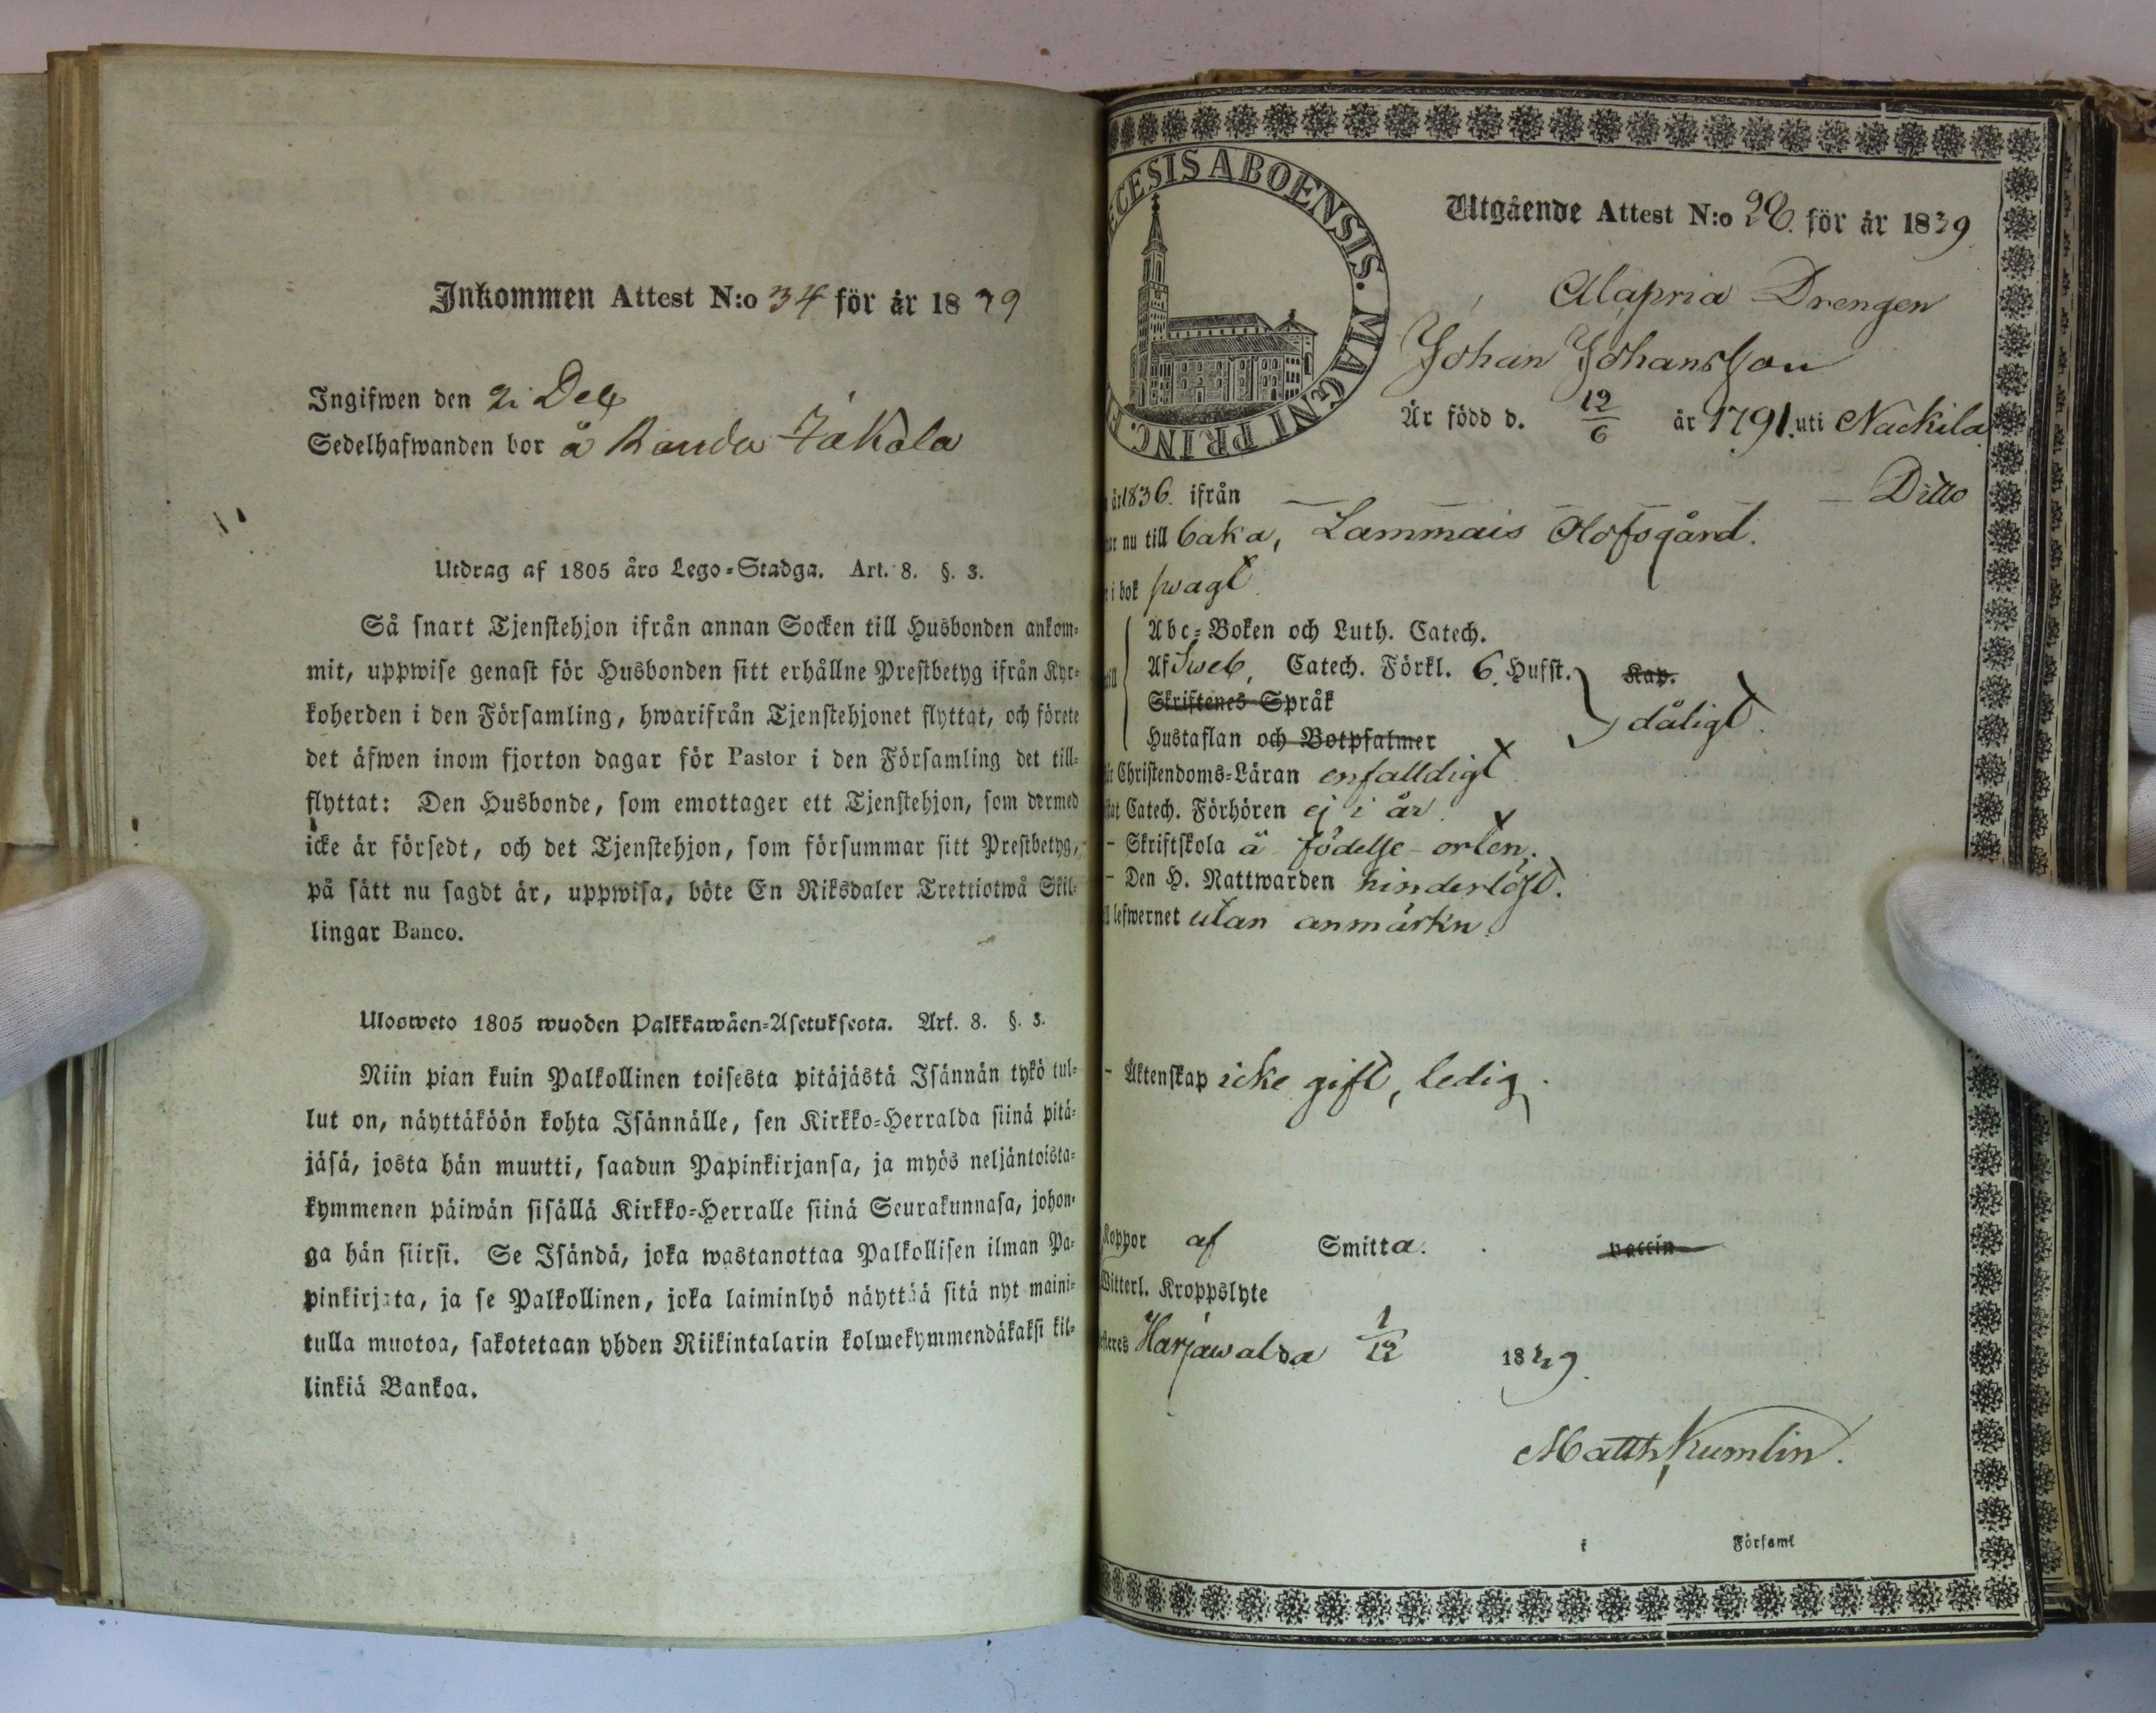 Inkommen Attest N:o 34 för år 1839
Ingifwen den 2i Dec
Sedelhafwanden bor å
Utdrag af 1805 års Lego-Stadga. Art. 8. §. 3.
Så snart Tjenstehjon ifrån annan Socken till Husbonden ankom-
mit, uppwise genast för Husbonden sitt erhållne Prestbetyg ifrån Kyr-
koherden i den Församling, hwarifrån Tjenstehjonet flyttat, och förete
det äfwen inom fjorton dagar för Pastor i den Församling det till-
flyttat: Den Husbonde, som emottager ett Tjenstehjon, som dermed
icke är försedt, och det Tjenstehjon, som försummar sitt Prestbetyg,
på sätt nu sagdt är, uppwisa, böte En Riksdaler Trettiotwå Skil-
lingar Banco.
Ulosweto 1805 wuoden Palkkawäen-Asetuksesta. Art. 8. §. 3.
Niin pian kuin Palkollinen toisesta pitäjästä Isännän tykö tul-
lut on, näyttäköön kohta Isännälle, sen Kirkko-Herralda siinä pitä-
jäsä, josta hän muutti, saadun Papinkirjansa, ja myös neljäntoista-
kymmenen päiwän sisällä Kirkko-Herralle siinä Seurakunnasa, johon-
ga hän siirsi. Se Isändä, joka wastanottaa Palkollisen ilman Pa-
pinkirjata, ja se Palkollinen, joka laiminlyö näyttää sitä nyt maini-
tulla muotoa, sakotetaan yhden Riikintalarin kolmekymmendäkaksi kil-
linkiä Bankoa.
ECESIS ABOENSIS. MAGNI PRINC. F
Utgående Attest N:o 28. för år 1839.
Alapria Drengen
Johan Johansson
Är född d. 12/6 år 1791. uti Nackila
år 1836. ifrån — — — — Ditto
ar nu till baka, Lammais Olofsgård.
i bok swagt.
Abc-Boken och Luth. Catech.
Af Sweb, Catech. Förkl. 6. Hufst. Kap.
Skriftenes Språk
dåligt.
Hustaflan och Botpsalmer
Christendoms-Läran enfalldigt
Catech. Förhören ej i år.
- Skriftskola å födelse-orten.
- Den H. Nattwarden hinderlöst.
lefwernet utan anmärkn.
- Äktenskap icke gift, ledig.
Koppor af Smitta. vaccin
Witterl. Kroppslyte
Harjawalda 1/12 1839.
Matth. Kumlin.
i Församl